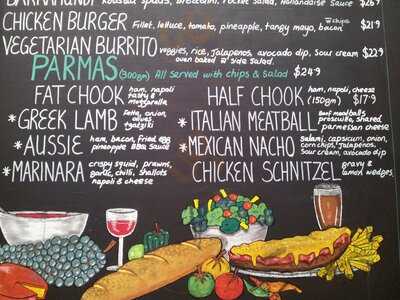 BARRAMUNDI Roasted spuds, broccolini, rocket salad, Hollandaise sauce $26.9
CHICKEN BURGER Fillet, lettuce, tomato, pineapple, tangy mayo, bacon +chips $21.9
VEGETARIAN BURRITO veggies, rice, jalapenos, avocado dip, sour cream $22.9
oven baked & side salad.
PARMAS (300gm) All served with chips & salad $24.9
FAT CHOOK ham, napoli tasty & mozzarella
*GREEK LAMB fetta, onion, olives, tzatziki
*AUSSIE ham, bacon, fried egg pineapple BBQ Sauce
*MARINARA crispy squid, prawns, garlic, chilli, shallots napoli & cheese
HALF CHOOK ham, napoli, cheese
(150gm) $17.9
*ITALIAN MEATBALL beef meatballs prosciutto, shaved parmesan cheese
*MEXICAN NACHO salami, capsicum, onion, corn chips, jalapenos, sour cream, avocado dip
CHICKEN SCHNITZEL gravy & lemon wedges